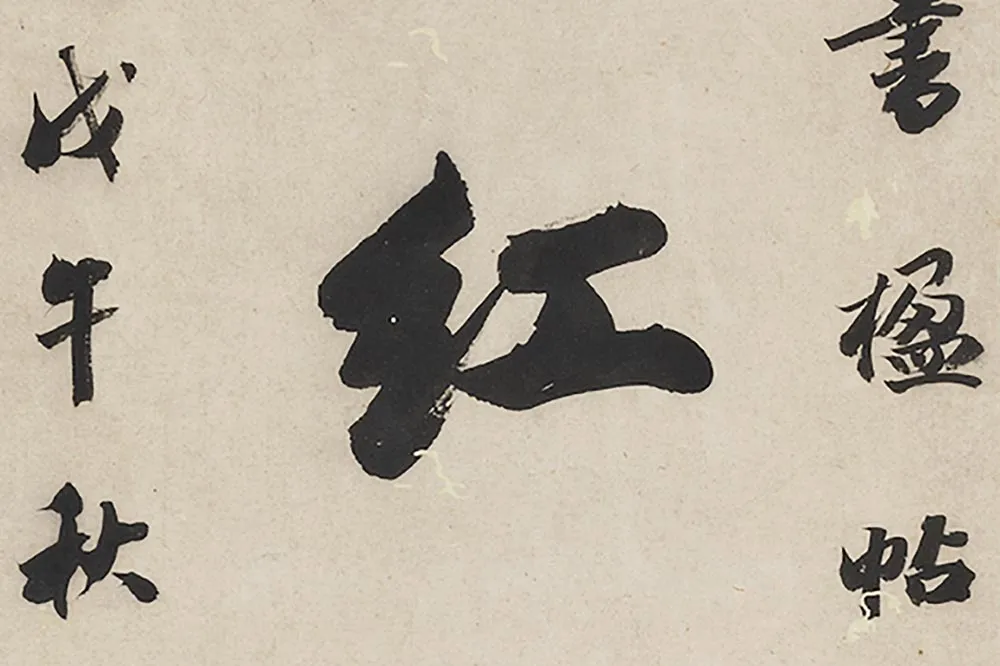 書楹帖
紅
戊午秋